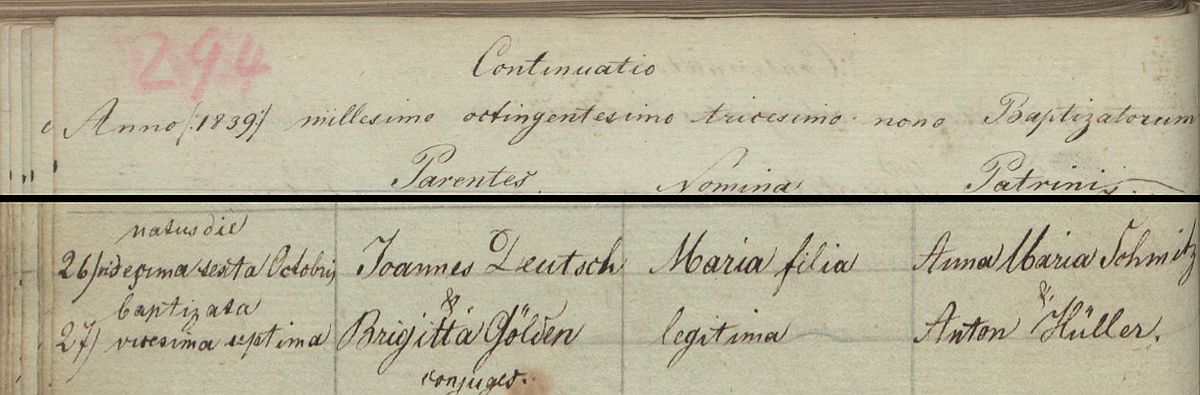 294
Continuatio
Anno /:1839:/ millesimo octingentesimo tricesimo nono Baptizatorum
Parentes Nomina Patrinis.
natus die
26/ videgima sexta Octobris Joannes Deutsch Maria filia Anna Maria Schmitz
baptizata & &
27/ vicesima septima Brigitta Gölden legitima Anton Hüller.
conjuges.